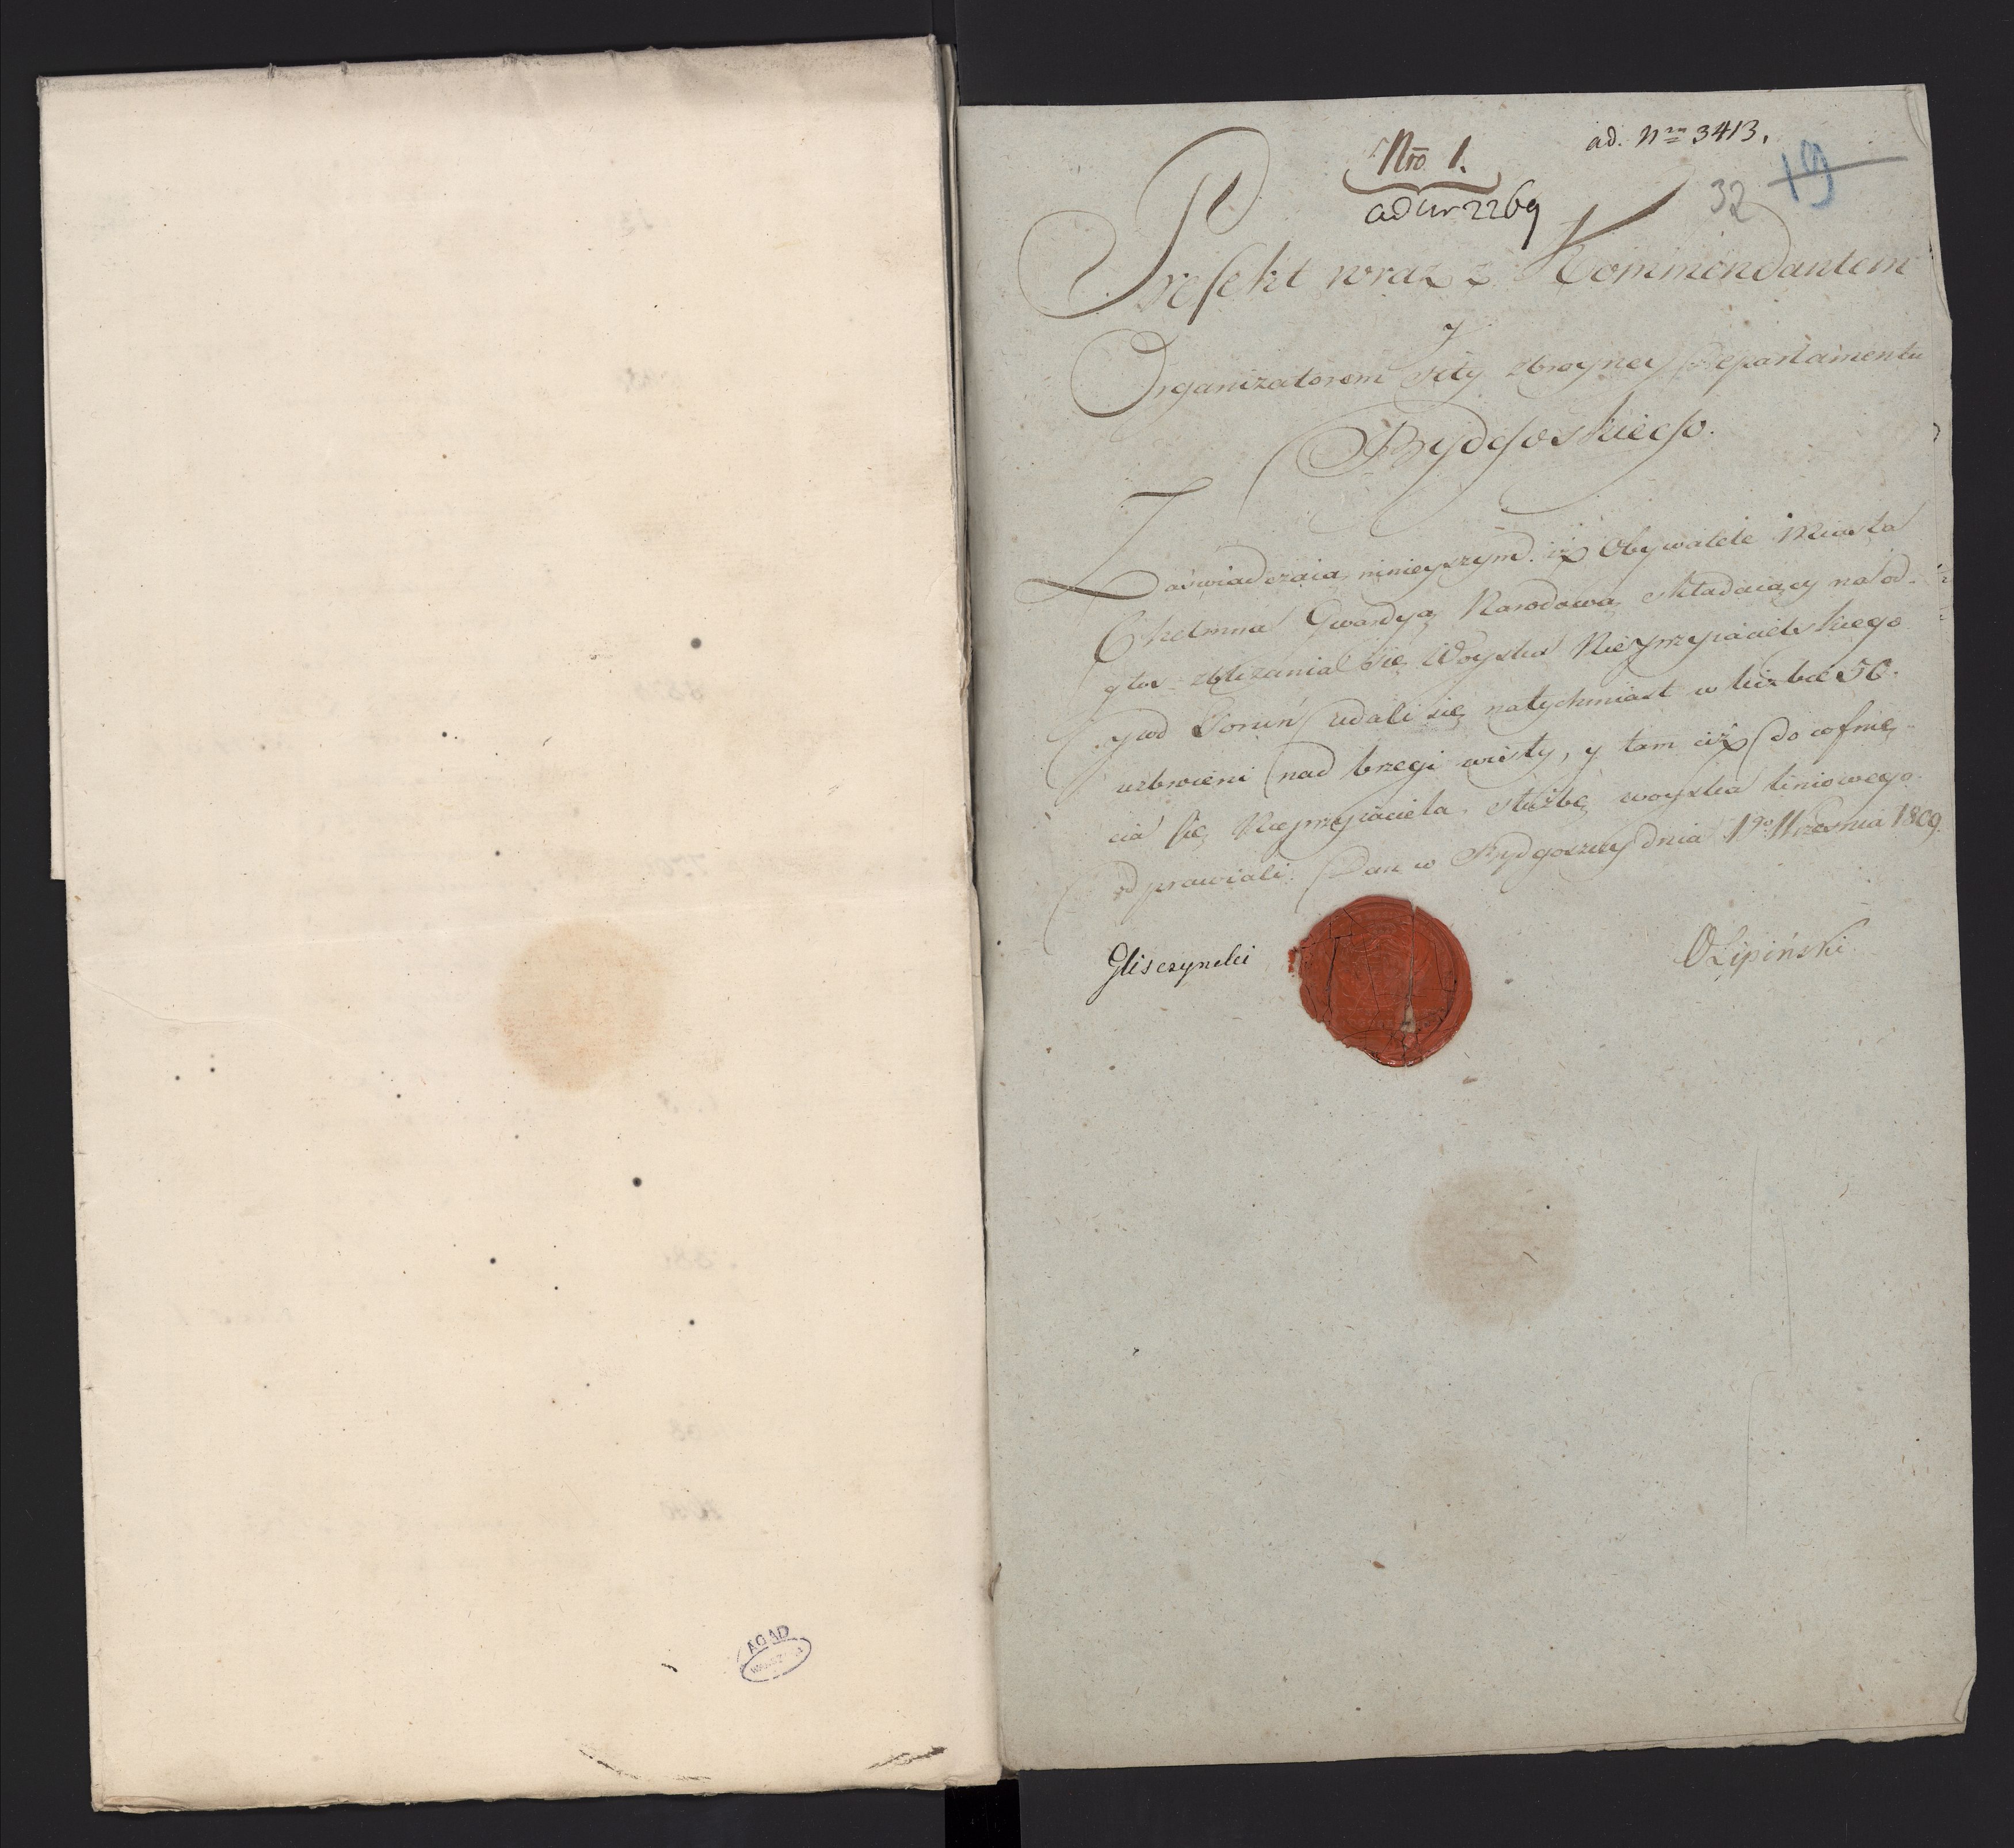 Nro 1.
ad Nr 2269
ad. Nrm 3413.
32 19
Prefekt wraz z Kommendantem
y
Organizatorem siły zbroyney Departamentu
Bydgoskiego.
Zaświadczaią ninieyszym iż Obywatele Miasta
Chełmna Gwardyą Narodową składaiący na od-
głos zbliżania się Woyska Nieyprzyiacielskiego
pod Toruń udali się natychmiast w liczbie 50.
uzbroieni nad brzegi wisły, y tam aż do cofnię
cia się Nieprzyiaciela służbę woyska liniowego
odprawiali. Dan w Bydgoszczy dnia 19o Września 1809.
Gliszczynski
OLipiński
AGAD
WARSZAWA